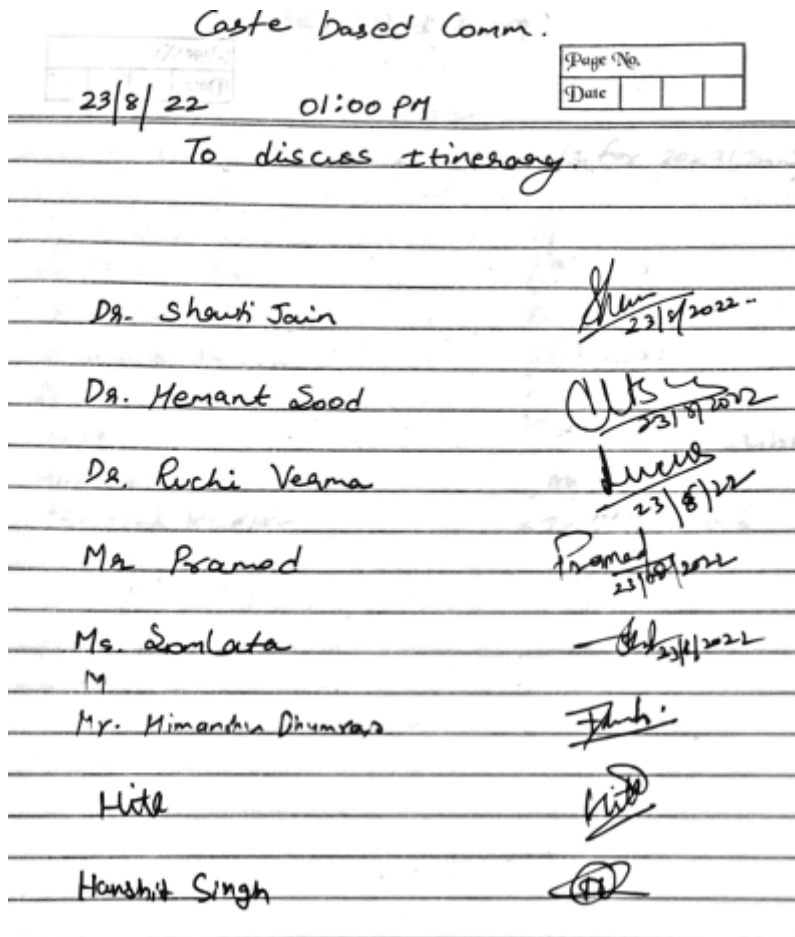 Caste based Comm.
Page No.
Date
23/8/22 01:00 PM
To discuss Itinerary.
Dr. Shruti Jain
23/8/2022
Dr. Hemant Sood
23/8/2022
Dr. Ruchi Verma
23/8/22
Mr Pramod Pramod
23/08/2022
Ms. Somlata 23/8/2022
M
Mr. Himanshu Dhumras
Hita
Harshit Singh